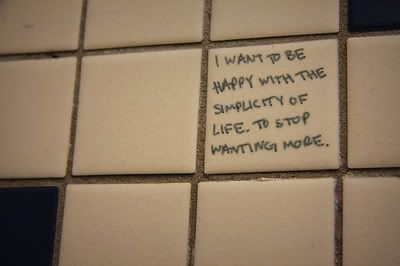 I WANT TO BE
HAPPY WITH THE
SIMPLICITY OF
LIFE. TO STOP
WANTING MORE.